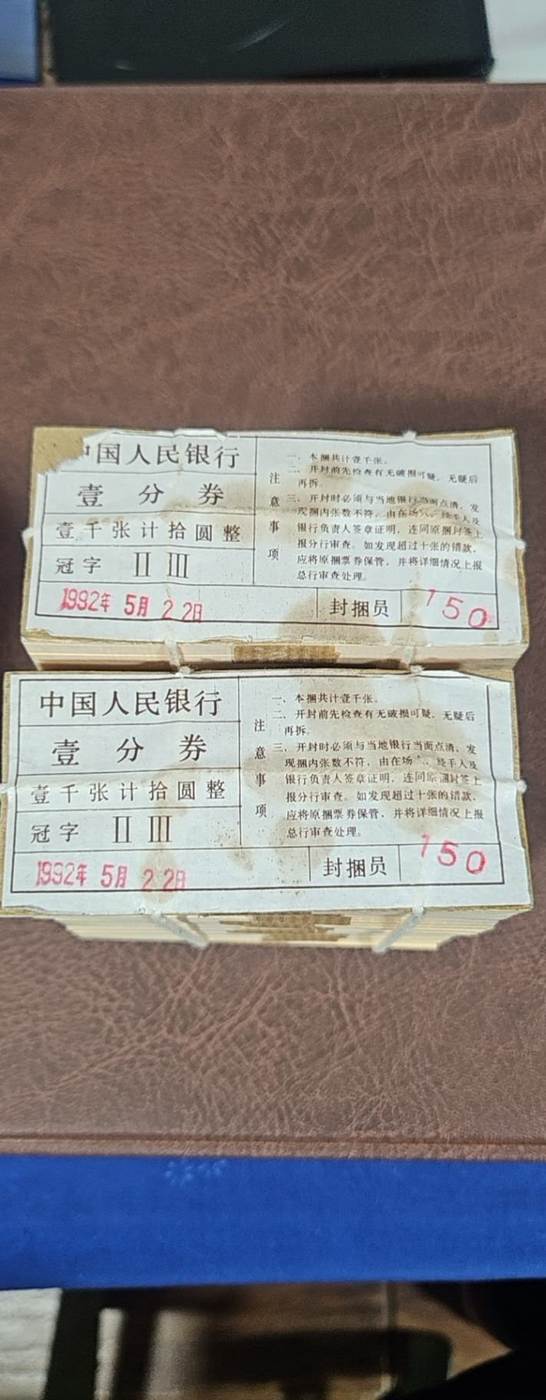 国人民银行
壹分券
壹千张计拾圆整
冠字 II III
1992年 5月 22日
注意事项
一、本捆共计壹千张。
二、开封前先检查有无破损可疑，无疑后
再拆。
三、开封时必须与当地银行当面点清，发
现捆内张数不符，由在场人、经手人及
银行负责人签章证明，连同原捆封签上
报分行审查。如发现超过十张的错款，
应将原捆票券保管，并将详细情况上报
总行审查处理。
封捆员 150
中国人民银行
壹分券
壹千张计拾圆整
冠字 II III
1992年 5月 22日
注意事项
一、本捆共计壹千张。
二、开封前先检查有无破损可疑，无疑后
再拆。
三、开封时必须与当地银行当面点清，发
现捆内张数不符，由在场人、经手人及
银行负责人签章证明，连同原捆封签上
报分行审查。如发现超过十张的错款，
应将原捆票券保管，并将详细情况上报
总行审查处理。
封捆员 150